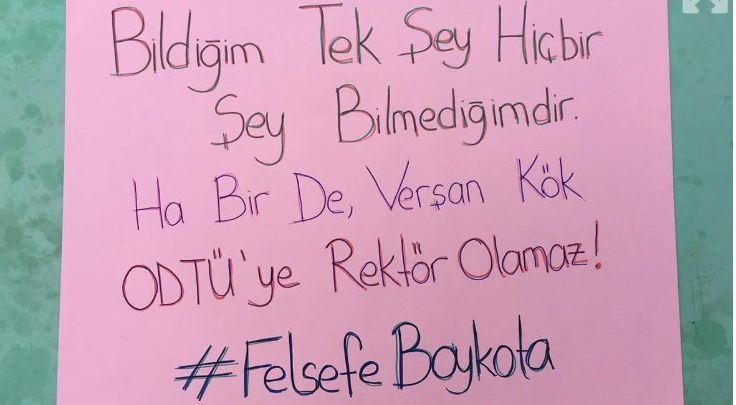 Bildiğim Tek Şey Hiçbir
Şey Bilmediğimdir.
Ha Bir De, Verşan Kök
ODTÜ'ye Rektör Olamaz!
#Felsefe Boykota